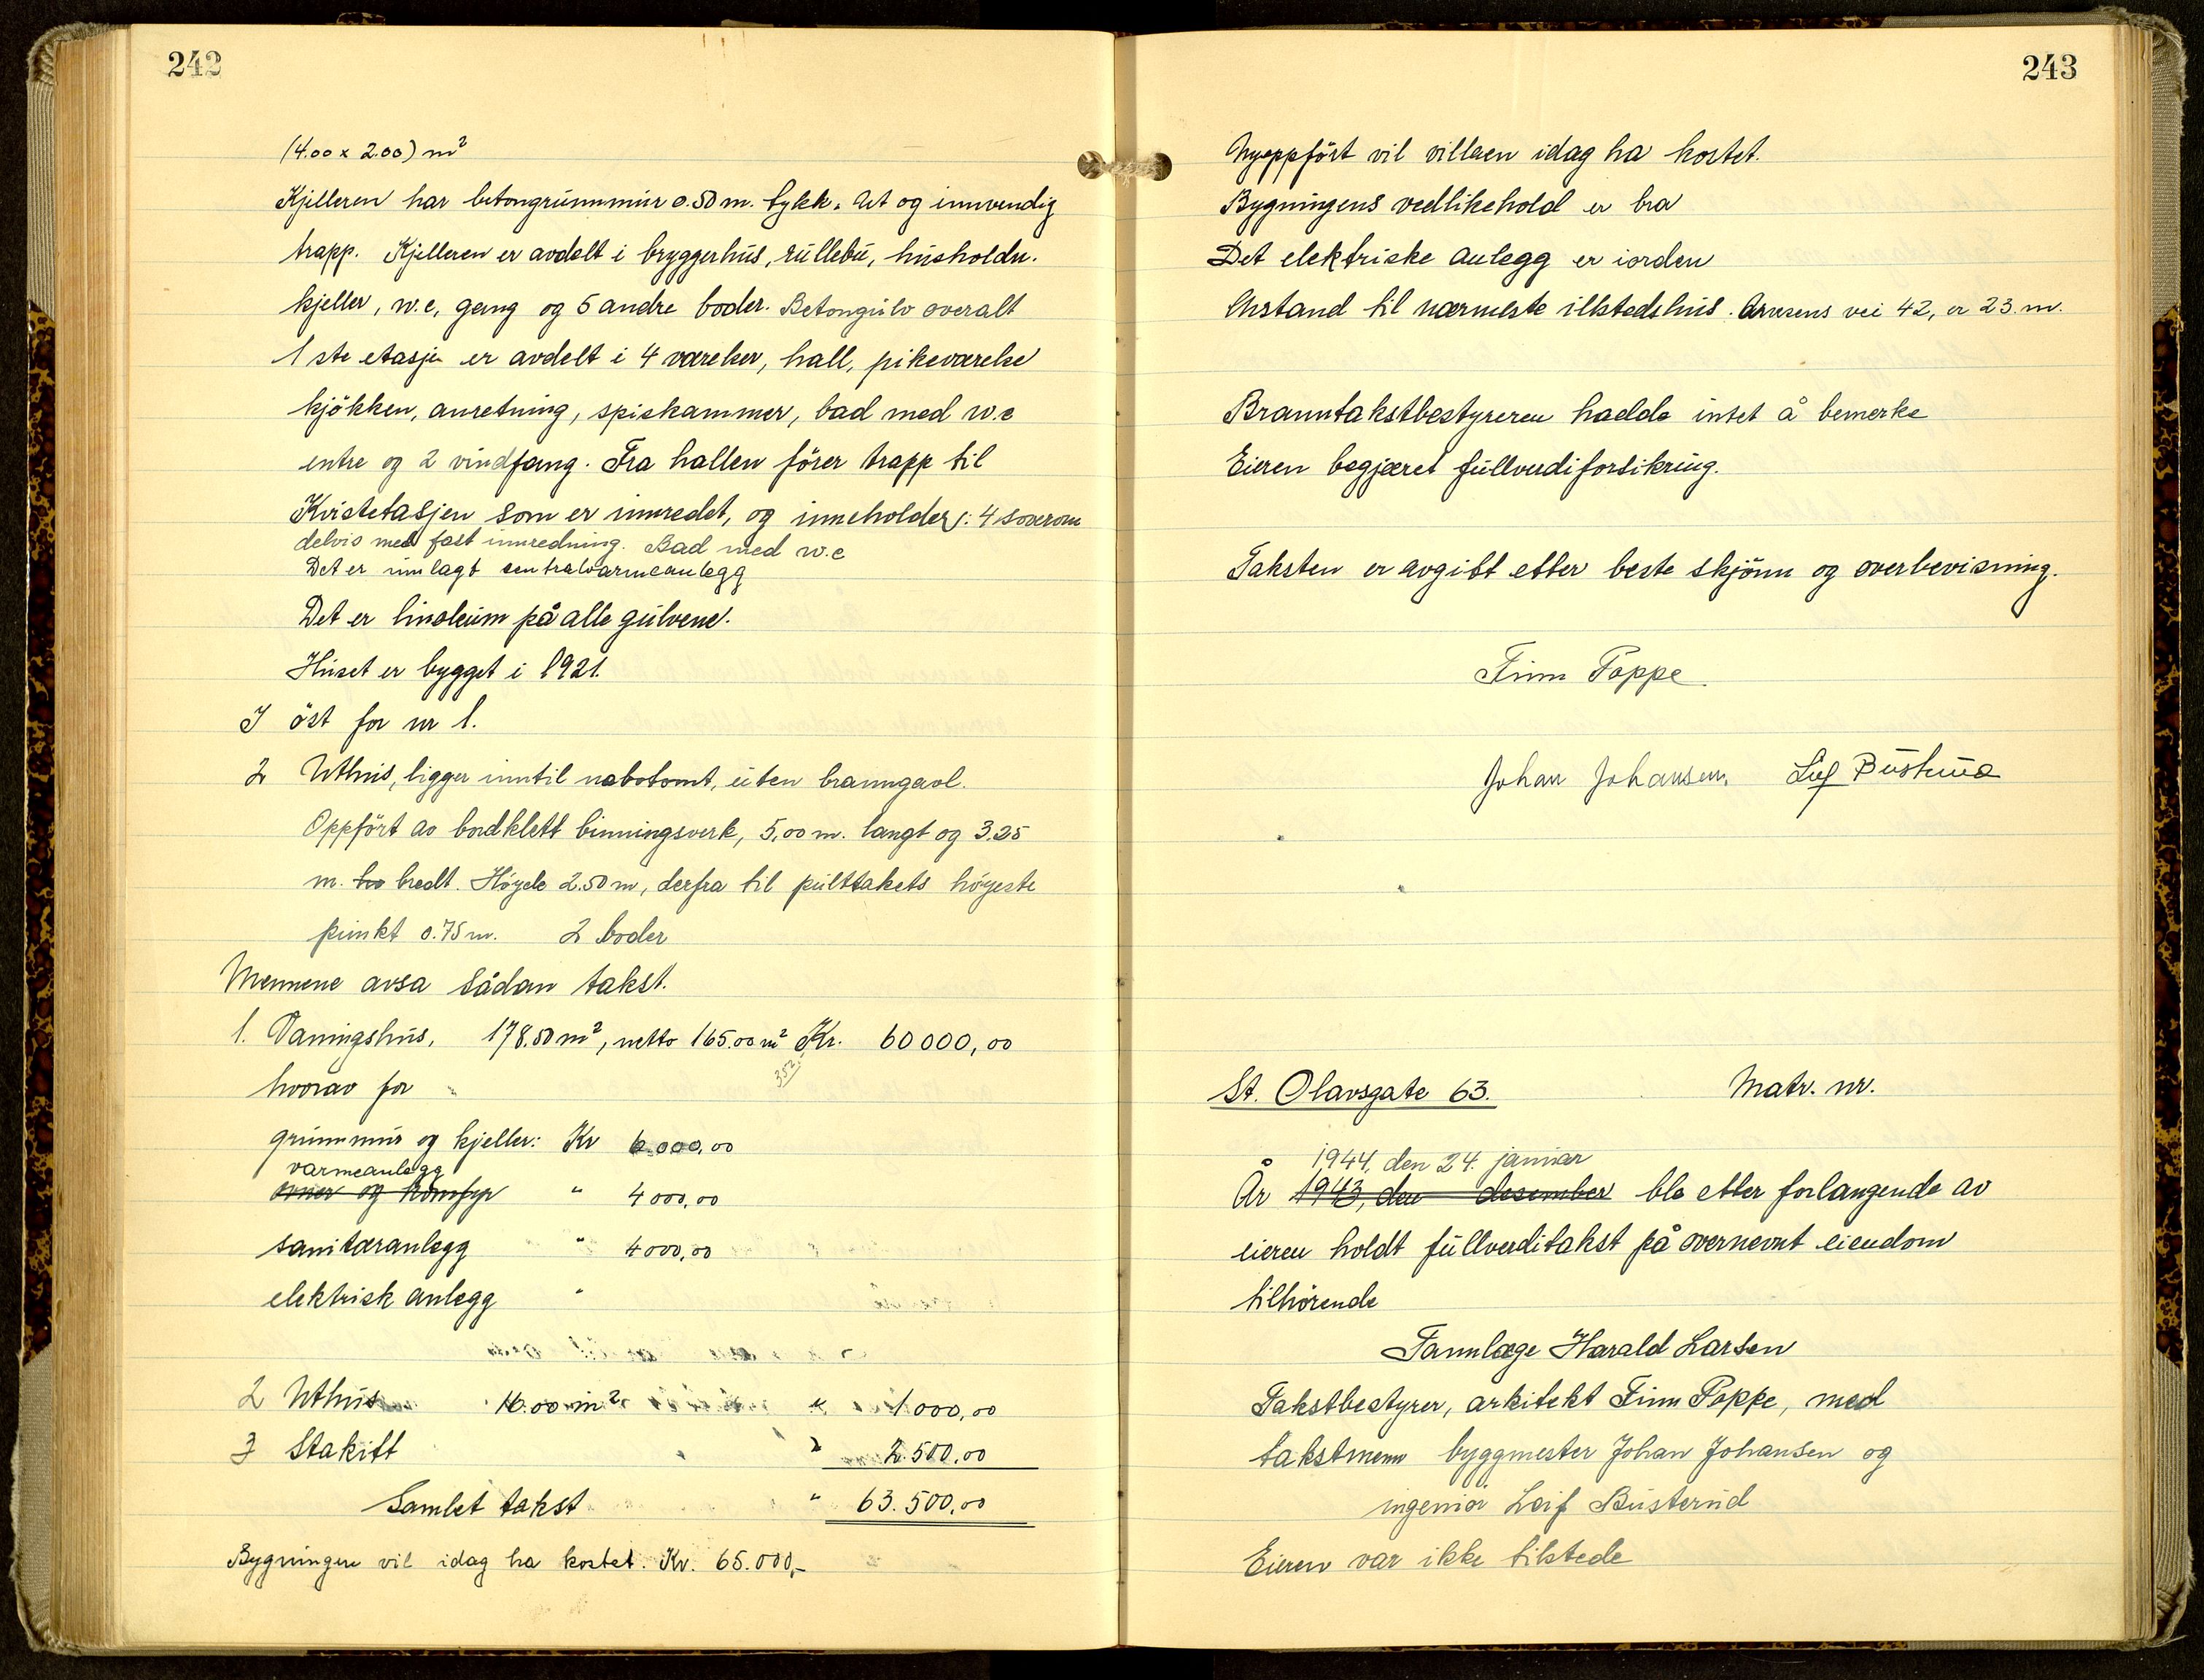 242
(4.00 x 2.00) m²
Kjelleren har betongrunnmur 0.50 m. tykk. Ut og innvendig
trapp. Kjelleren er avdelt i bryggerhus, rullebu, husholdn.
kjeller, w.c, gang og 5 andre boder. Betongulv overalt
1 ste etasje er avdelt i 4 værelser, hall, pikeværelse
kjökken, anretning, spiskammer, bad med w.c
entre og 2 vindfang. Fra hallen förer trapp til
Kvistetasjen som er innredet, og inneholder: 4 soverom
delvis med fast innredning. Bad med w.c
Det er innlagt sentralvarmeanlegg
Det er linoleum på alle gulvene.
Huset er bygget i 1921.
I öst for nr 1.
2 Uthus, ligger inntil nabotomt, uten branngavl.
Oppfört av bordklett binningsverk, 5,00 m. langt og 3.25
m. ho bredt. Höyde 2.50 m, derfra til pulttakets höyeste
punkt 0.75 m. 2 boder
Mennene avsa sådan takst.
1. Vaningshus, 178.50 m², netto 165.00 m² Kr. 60000,00
352
hvorav for
grunnmur og kjeller: Kr 6.000,00
varmeanlegg
ovner og komfyr " 4000,00
sanitæranlegg " 4000,00
elektrisk anlegg "
2 Uthus 16.00 m² " 1000,00
3 Stakitt " 2.500,00
Samlet takst " 63.500,00
Bygningen vil idag ha kostet. Kr. 65.000,-
243
Nyoppfört vil villaen idag ha kostet.
Bygningens vedlikehold er bra
Det elektriske anlegg er iorden
Avstand til nærmeste ildstedshus. Arvesens vei 42, er 23. m.
Branntakstbestyreren hadde intet å bemerke
Eieren begjæret fullverdiforsikring.
Taksten er avgitt etter beste skjönn og overbevisning.
Finn Poppe.
Johan Johansen. Leif Busterud
St. Olavsgate 63. Matr. nr.
1944, den 24. januar
År 1943, den desember ble etter forlangende av
eieren holdt fullverditakst på overnevnt eiendom
tilhörende
Tannlæge Harald Larsen
Takstbestyrer, arkitekt Finn Poppe, med
takstmenn byggmester Johan Johansen og
ingeniör Leif Busterud
Eieren var ikke tilstede